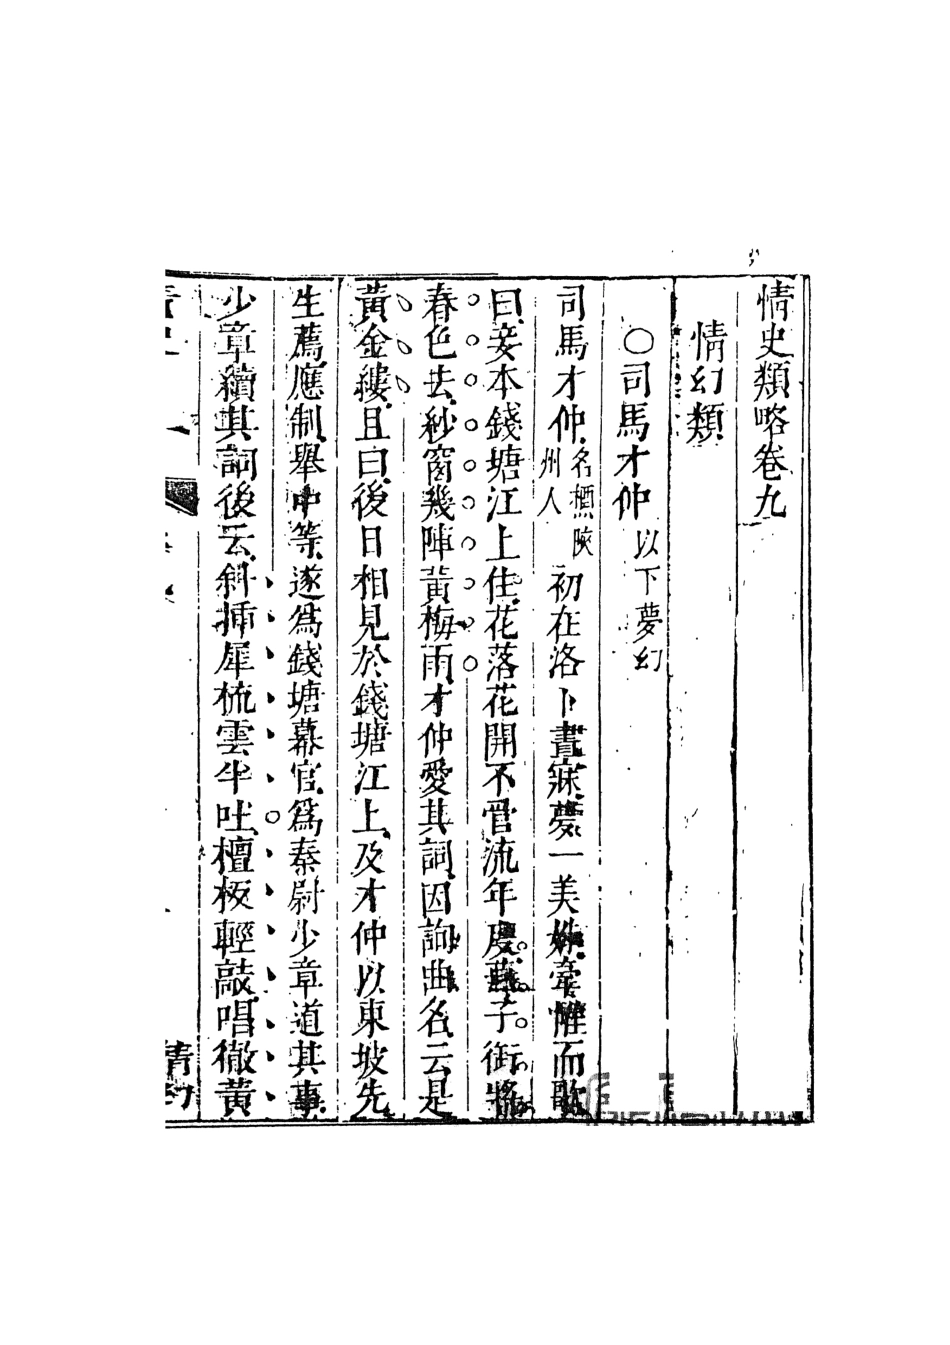 情史類略卷九
情幻類
○司馬才仲以下夢幻
司馬才仲名槱陝州人初在洛下晝寐夢一美姝牽帷而歌
曰妾本錢塘江上住花落花開不管流年度燕子銜將
春色去紗窗幾陣黃梅雨才仲愛其詞因詢曲名云是
黃金縷且曰後日相見於錢塘江上及才仲以東坡先
生薦應制舉中等遂爲錢塘幕官爲秦尉少章道其事
少章續其詞後云斜揷犀梳雲半吐檀板輕敲唱徹黃
情幻